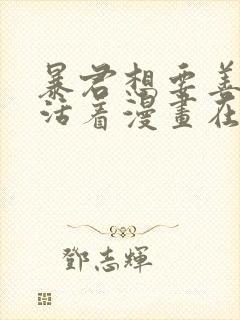 暴君想要善
活着漫畫在
鄧志輝